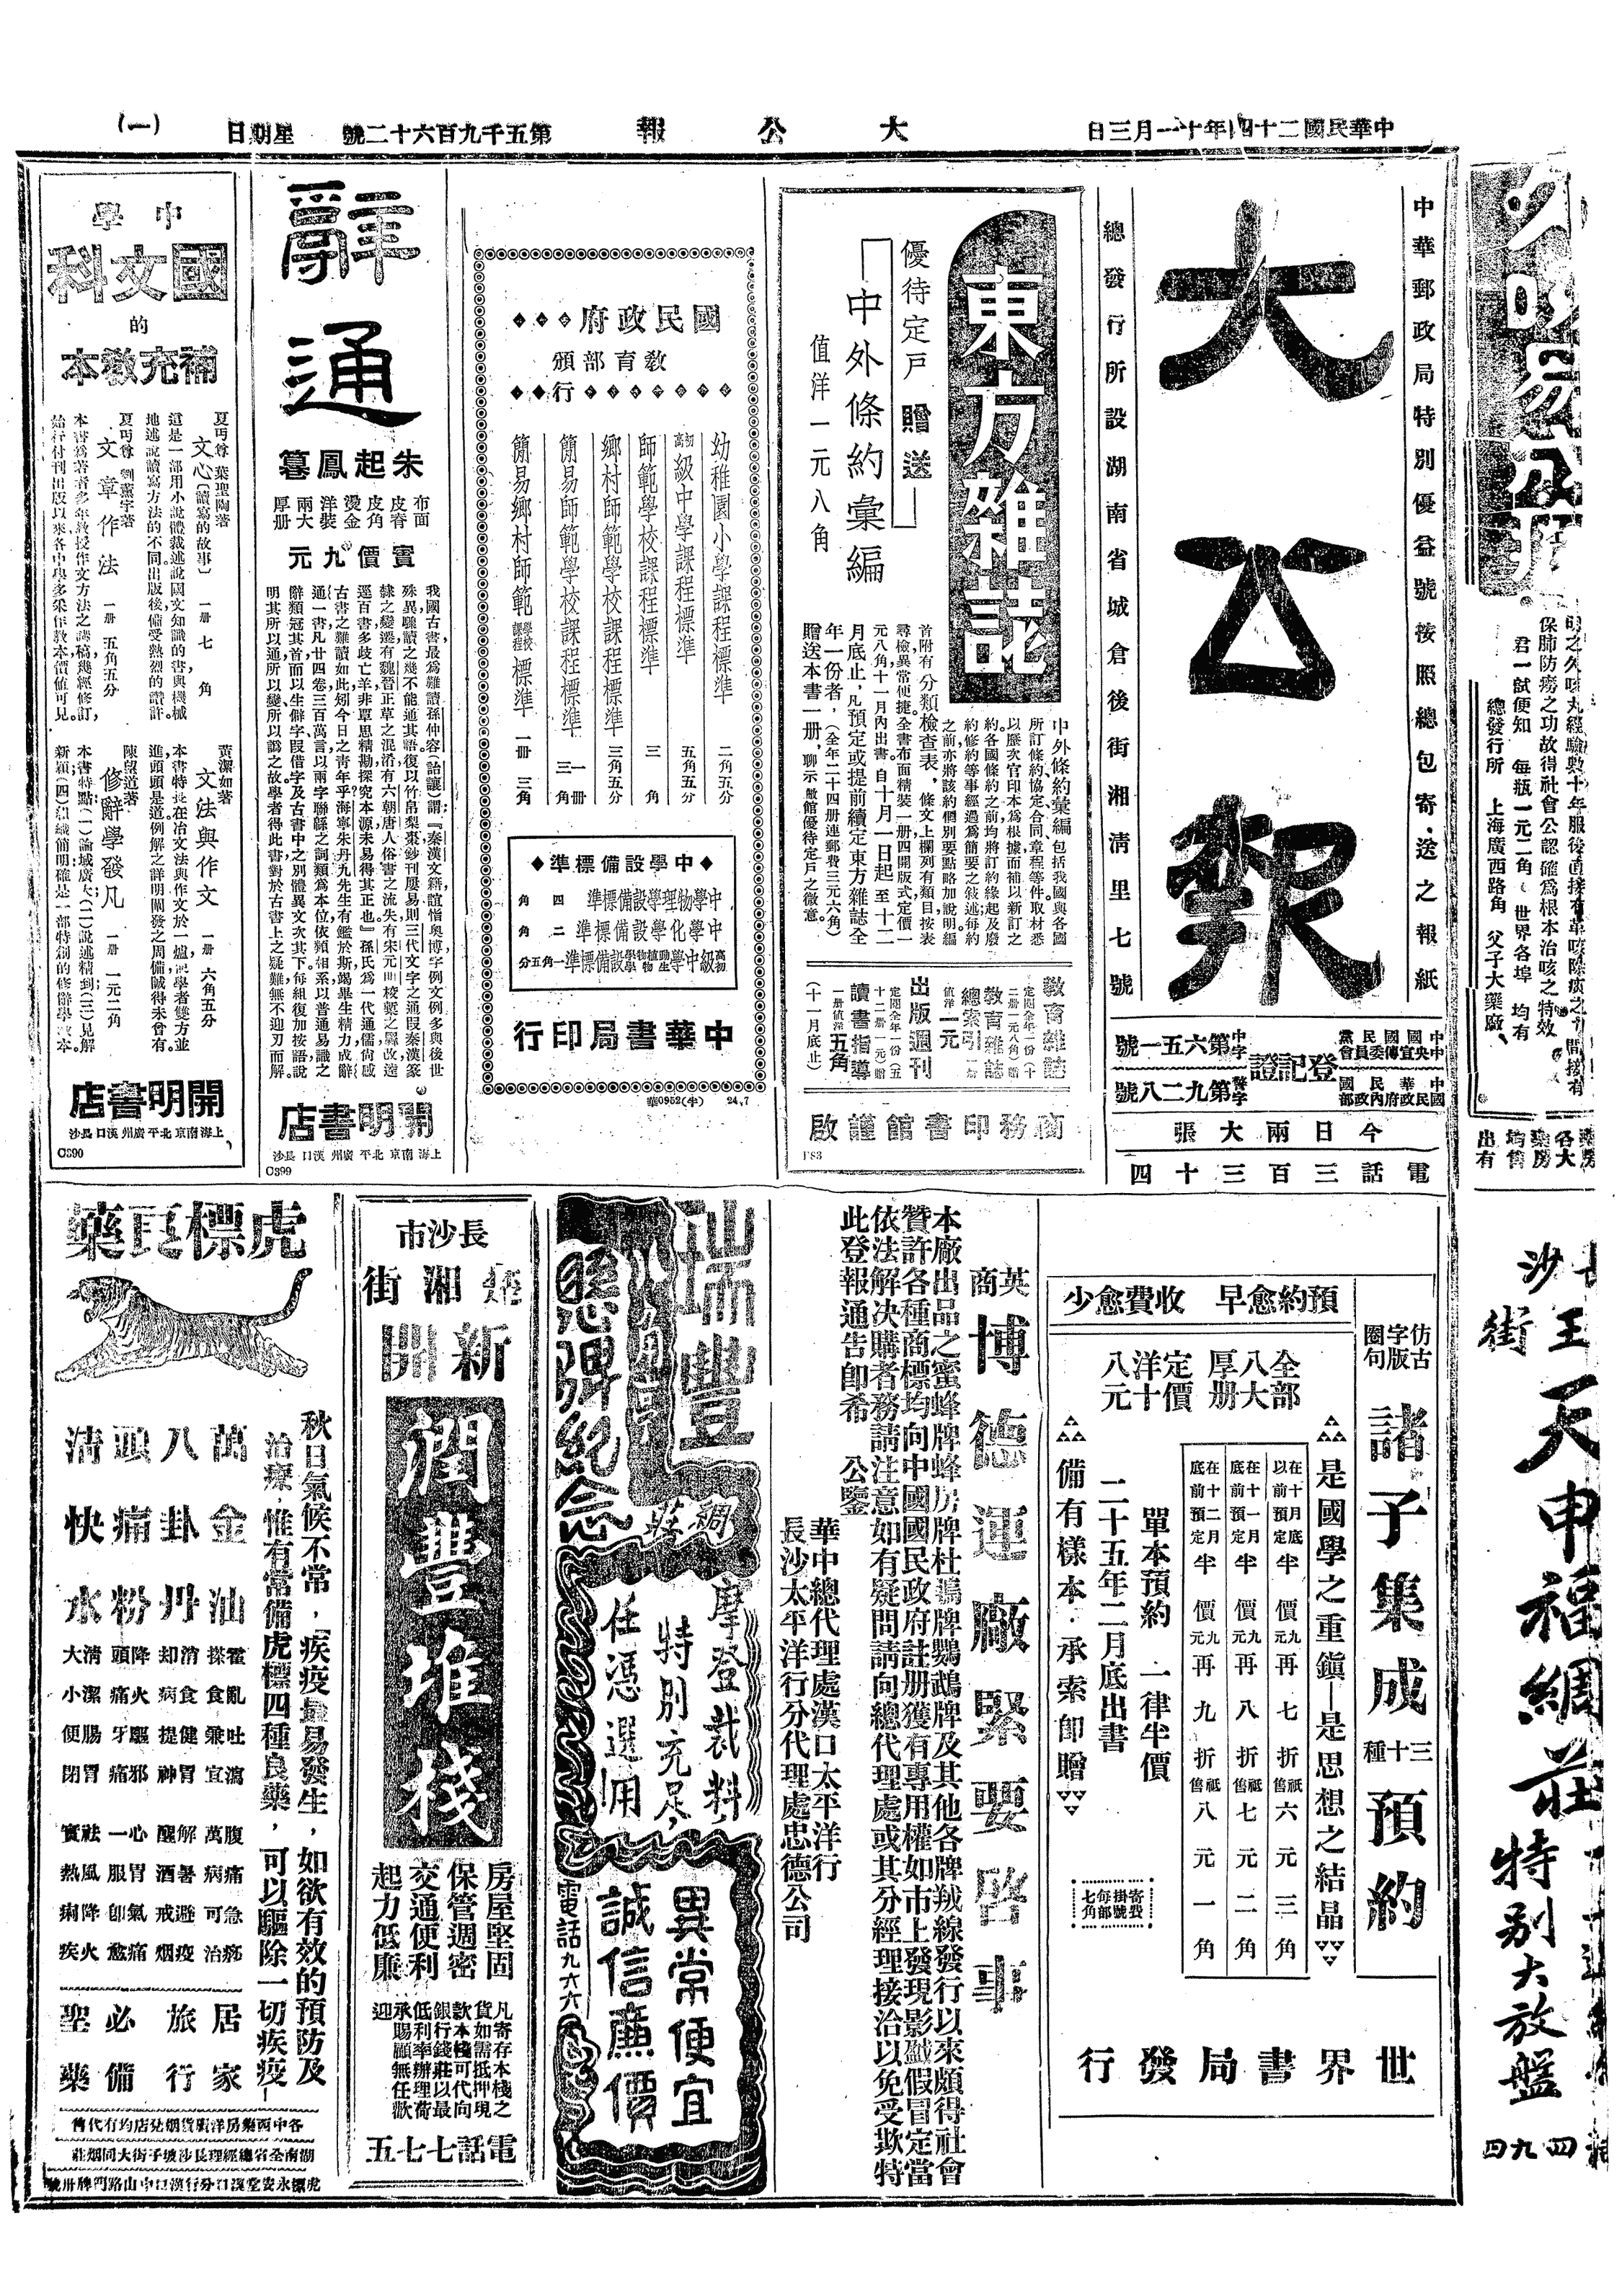 中華民國二十四年十一月三日
大公報
第五千九百六十二號
星期日
(一)
中華郵政局特別優益號按照總包寄送之報紙
大公報
總發行所設湖南省城倉後街湘清里七號
中國國民黨中央宣傳委員會
中華民國國民政府內政部
登記證
中字第六五一號
警字第九二八號
今日兩大張
電話三百三十四
東方雜誌
優待定戶贈送
中外條約彙編
值洋一元八角
中外條約彙編包括我國與各國
所訂條約協定合同章程等件取材悉
以歷次官印本為根據而補以新訂之
約各國條約之前均將訂約緣起及廢
約修約等事經過為簡要之敍述每約
之前亦將該約個別要點略加說明編
首附有分類檢查表，條文上欄列有類目按表
尋檢異常便捷全書布面精裝一册四開版式定價一
元八角十一月內出書自十月一日起至十二
月底止，凡預定或提前續定東方雜誌全
年一份者，（全年二十四册連郵費三元六角）
贈送本書一册，聊示敝館優待定戶之微意。
教育雜誌
定閱全年一份（十二册一元八角）贈
教育雜誌總索引一册
值洋一元
出版週刊
定閱全年一份（五十二册一元）贈
讀書指導
一册值洋五角
（十一月底止）
商務印書館謹啟
F83
國民政府
教育部頒行
幼稚園小學課程標準 二角五分
初高級中學課程標準 五角五分
師範學校課程標準 三角
鄉村師範學校課程標準 三角五分
簡易師範學校課程標準 一册 三角
簡易鄉村師範學校課程標準 一册 三角
中學設備標準
中學物理學設備標準 四角
中學化學設備標準 二角
初高級中學動生植物物學學設備標準 一角五分
中華書局印行
華0952(半) 24,7
辭通
朱起鳳著
布面皮脊皮角燙金洋裝兩大厚册
實價九元
我國古書，最為難讀孫仲容（詒讓）謂：『秦漢文籍，誼恉奧博字例文例多與後世
殊異，驟讀之幾不能通其語，復以竹帛梨棗鈔刊屢易，則三代文字之通叚秦漢篆
隸之變遷，有魏晉正草之混淆，有六朝唐人俗書之流失，有宋元明校槧之羼改，逵
逕百書，多歧亡羊，非覃思精勘，探究本源，未易得其正也』孫氏為一代通儒，尚感
古書之難讀如此，矧今日之青年乎，海寧朱丹九先生有鑑於斯，竭畢生精力，成辭
通一書，凡廿四卷，三百萬言，以兩字聯緜之詞類為本位，依類相系，以普通易識之
辭類冠其首，而以生僻字叚借字及古書中之別體異文次其下，每組復加按語，說
明其所以通，所以變，所以譌之故，學者得此書，對於古書上之疑難，無不迎刃而解。
開明書店
上海 南京 北平 廣州 漢口 長沙
C399
中學
國文科
的
補充教本
夏丏尊 葉聖陶著
文心（讀寫的故事） 一册 七角
這是一部用小說體裁述說國文知識的書與機械
地述說讀寫方法的不同出版後備受熱烈的讚許
夏丏尊 劉薰宇著
文章作法 一册 五角五分
本書為著者多年教授作文方法之講稿幾經修訂，
始行付刊出版以以來各中學多采作教本價值可見。
黃潔如著
文法與作文 一册 六角五分
本書特長在冶文法與作文於一爐，使學者雙方並
進頭頭是道例解之詳明闡發之周備誠得未曾有。
陳望道著
修辭學發凡 一册 一元二角
本書特點：（一）論域廣大（二）說述精到（三）見解
新穎（四）組織簡明確是一部特創的修辭學教本。
開明書店
上海 南京 北平 廣州 漢口 長沙
C390
仿古字版圈句
諸子集成三十種預約
預約愈早 收費愈少
全部八大厚册
定價洋十八元
是國學之重鎮—是思想之結晶
在十月底以前預定 半價九元再七折祇售六元三角
在十一月底前預定 半價九元再八折祇售七元二角
在十二月底前預定 半價九元再九折祇售八元一角
單本預約 一律半價
二十五年二月底出書
備有樣本·承索即贈
寄費掛號每部七角
世界書局發行
英商
博德運廠緊要啓事
本廠出品之蜜蜂牌蜂房牌杜鵑牌鸚鵡牌及其他各牌羢線發行以來頗得社會
贊許各種商標均向中國國民政府註册獲有專用權如市上發現影戤假冒定當
依法解决購者務請注意如有疑問請向總代理處或其分經理接洽以免受欺特
此登報通告即希 公鑒
華中總代理處漢口太平洋行
長沙太平洋行分代理處忠德公司
瑞豐
綢莊
懸牌紀念
摩登裁料，
特別充足，
任憑選用
異常便宜
誠信廉價
電話九六六
長沙市
楚湘街
新開
潤豐堆棧
房屋堅固
保管週密
交通便利
起力低廉
凡寄存本棧之
貨如需抵押現
款本棧可代向
銀行錢莊以最
低利率辦理荷
承賜顧無任歡
迎
電話七七五
虎標良藥
秋日氣候不常，疾疫最易發生，如欲有效的預防及
治療，惟有常備虎標四種良藥，可以驅除一切疾疫—
萬金油
八卦丹
頭痛粉
清快水
霍亂吐瀉
搽食兼宜
腹痛急痧
萬病可治
清食健胃
却病提神
解暑避疫
醒酒戒烟
降火驅邪
頭痛牙痛
心胃氣痛
一服卽愈
清潔腸胃
大小便閉
祛風降火
實熱痢疾
居家旅行
必備聖藥
各中西藥房洋廣貨烟兌店均有代售
湖南全省總經理長沙坡子街大同烟莊
虎標永安堂漢口分行漢口中山路門牌卅號
保肺防癆之功故得社會公認確為根本治咳之特效
君一試便知 每瓶一元二角 世界各埠 均有
總發行所 上海廣西路角 父子大藥廠
各大藥房均有出售
天申福綢莊
特别大放盤
四九四